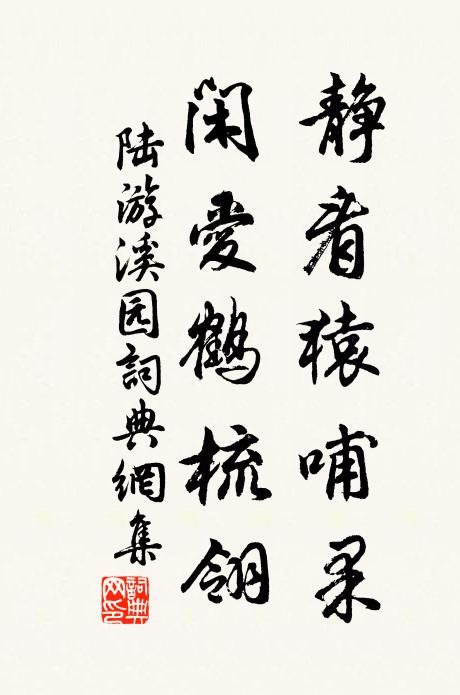 静看猿哺果
闲爱鹤梳翎
陆游溪园詞典網集
詞典网印